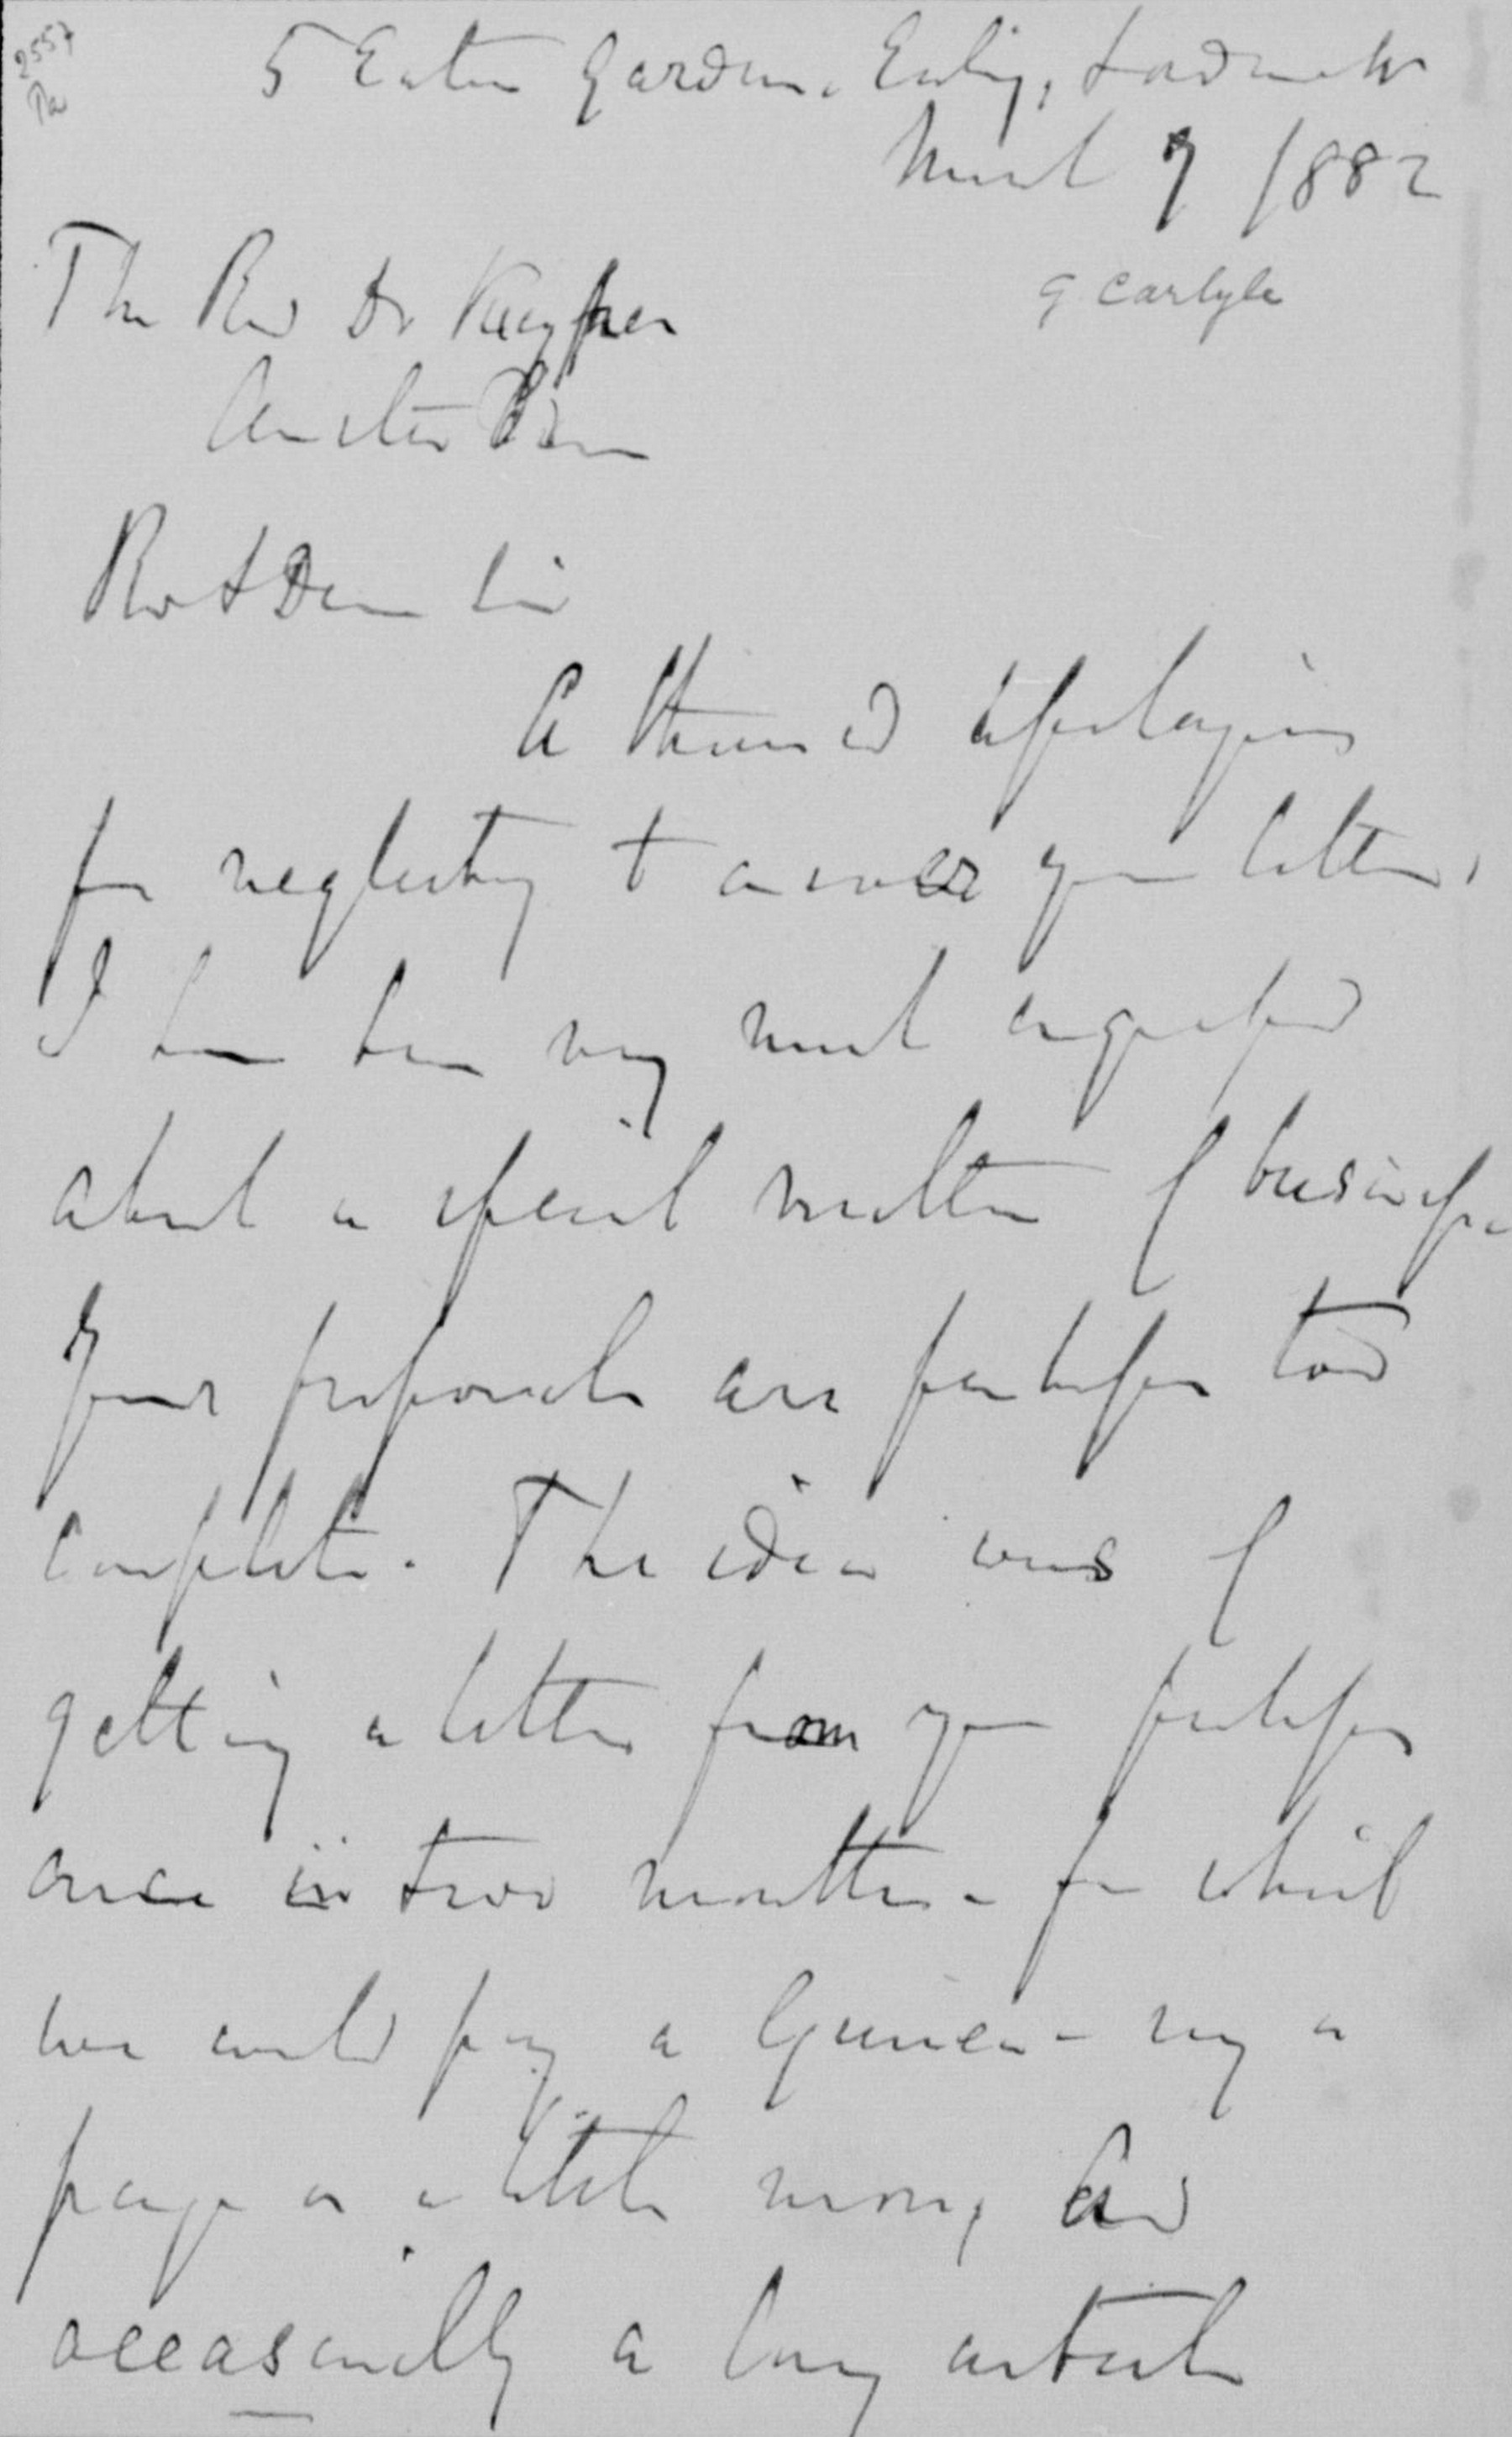 2557
Pa
5 Eaton Gardens, Ealing, London W
March 7 1882
G Carlyle
The Rev Dr Kuyper
Amsterdam
Rev & Dear Sir
A thousand apologies
for neglecting to answer your letter,
I have been very much engaged
about a special matter of business.
Your proposals are perhaps too
complete. The idea was of
getting a letter from you perhaps
once in two months - for which
we could pay a Guinea - say a
page or a little more, and
occasionally a long article